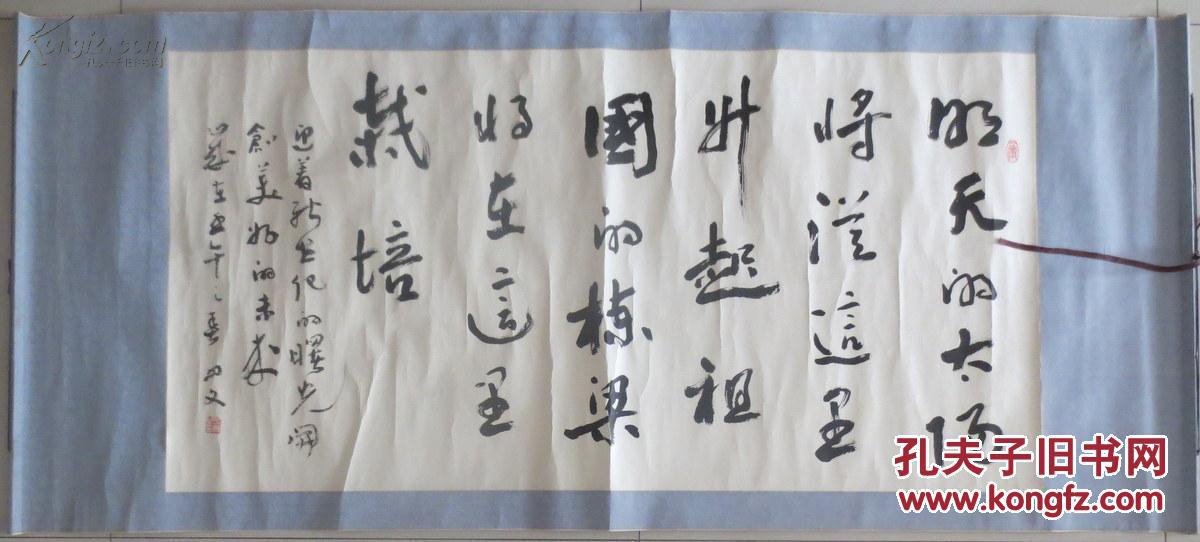 明天的太陽
將從這里
升起祖
國的栋梁
将在這里
栽培
迎着新世纪的曙光開
創美好的未来
之春
孔夫子旧书网
www.kongfz.com
Kongfz.com
孔夫子旧书网